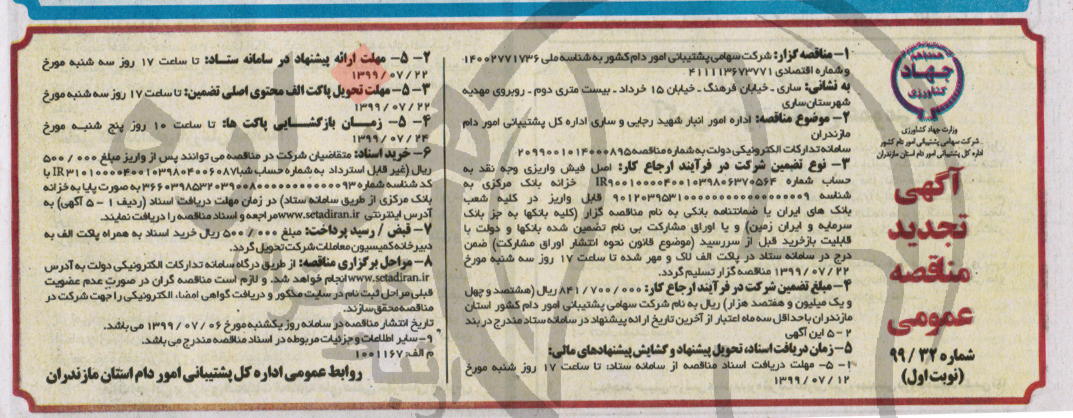 هفته‌نامه
جهاد
کشاورزی
وزارت جهاد کشاورزی
شرکت سهامی پشتیبانی امور دام کشور
اداره کل پشتیبانی امور دام استان مازندران
آگهی
تجدید
مناقصه
عمومی
شماره ۳۲ / ۹۹
(نوبت اول)
۱- مناقصه گزار: شرکت سهامی پشتیبانی امور دام کشور به شناسه ملی ۱۴۰۰۲۷۷۱۷۳۶
و شماره اقتصادی ۴۱۱۱۱۳۶۷۳۷۷۱
به نشانی: ساری - خیابان فرهنگ - خیابان ۱۵ خرداد - بیست متری دوم - روبروی مهدیه
شهرستان ساری
۲- موضوع مناقصه: اداره امور انبار شهید رجایی و ساری اداره کل پشتیبانی امور دام
مازندران
سامانه تدارکات الکترونیکی دولت به شماره مناقصه ۲۰۹۹۰۰۱۰۱۴۰۰۰۸۹۵
۳- نوع تضمین شرکت در فرآیند ارجاع کار: اصل فیش واریزی وجه نقد به
حساب شماره IR۹۰۰۱۰۰۰۰۴۰۰۱۰۳۹۸۰۶۳۷۰۵۶۴ خزانه بانک مرکزی به
شناسه ۹۰۱۲۰۳۹۵۳۱۰۰۰۰۰۰۰۰۰۰۰۰۰۰۰۰۰۹ قابل واریز در کلیه شعب
بانک های ایران یا ضمانتنامه بانکی به نام مناقصه گزار (کلیه بانکها به جز بانک
سرمایه و ایران زمین) و یا اوراق مشارکت بی نام تضمین شده بانکها و دولت با
قابلیت بازخرید قبل از سررسید (موضوع قانون نحوه انتشار اوراق مشارکت) ضمن
درج در سامانه ستاد در پاکت الف لاک و مهر شده تا ساعت ۱۷ روز سه شنبه مورخ
۱۳۹۹/۰۷/۲۲ مناقصه گزار تسلیم گردد.
۴- مبلغ تضمین شرکت در فرآیند ارجاع کار: ۸۴۱/۷۰۰/۰۰۰ ریال (هشتصد و چهل
و یک میلیون و هفتصد هزار) ریال به نام شرکت سهامی پشتیبانی امور دام کشور استان
مازندران با حداقل سه ماه اعتبار از آخرین تاریخ ارائه پیشنهاد در سامانه ستاد مندرج در بند
۲ - ۵ این آگهی
۵- زمان دریافت اسناد، تحویل پیشنهاد و گشایش پیشنهادهای مالی:
۱- ۵- مهلت دریافت اسناد مناقصه از سامانه ستاد: تا ساعت ۱۷ روز شنبه مورخ
۱۳۹۹/۰۷/۱۲
۲- ۵- مهلت ارائه پیشنهاد در سامانه ستاد: تا ساعت ۱۷ روز سه شنبه مورخ
۱۳۹۹/۰۷/۲۲
۳- ۵- مهلت تحویل پاکت الف محتوی اصلی تضمین: تا ساعت ۱۷ روز سه شنبه مورخ
۱۳۹۹/۰۷/۲۲
۴- ۵- زمان بازگشایی پاکت ها: تا ساعت ۱۰ روز پنج شنبه مورخ
۱۳۹۹/۰۷/۲۴
۶- خرید اسناد: متقاضیان شرکت در مناقصه می توانند پس از واریز مبلغ ۵۰۰/۰۰۰
ریال (غیر قابل استرداد به شماره حساب شبا IR۳۱۰۱۰۰۰۰۴۰۰۱۰۳۹۸۰۴۰۰۶۰۸۷ با
کد شناسه شماره ۳۶۶۰۳۹۸۵۳۲۰۳۹۰۰۸۰۰۰۰۰۰۰۰۰۰۰۹۳ به صورت پایا به خزانه
بانک مرکزی از طریق سامانه ستاد) در زمان مهلت دریافت اسناد (ردیف ۱ - ۵ آگهی) به
آدرس اینترنتی www.setadiran.ir مراجعه و اسناد مناقصه را دریافت نمایند.
۷- قبض / رسید پرداخت: مبلغ ۵۰۰/۰۰۰ ریال خرید اسناد به همراه پاکت الف به
دبیرخانه کمیسیون معاملات شرکت تحویل گردد.
۸- مراحل برگزاری مناقصه: از طریق درگاه سامانه تدارکات الکترونیکی دولت به آدرس
www.setadiran.ir انجام خواهد شد. و لازم است مناقصه گران در صورت عدم عضویت
قبلی مراحل ثبت نام در سایت مذکور و دریافت گواهی امضاء الکترونیکی را جهت شرکت در
مناقصه محقق سازند.
تاریخ انتشار مناقصه در سامانه روز یکشنبه مورخ ۱۳۹۹/۰۷/۰۶ می باشد.
۹- سایر اطلاعات و جزئیات مربوطه در اسناد مناقصه مندرج می باشد.
م الف: ۱۰۰۱۱۶۷
روابط عمومی اداره کل پشتیبانی امور دام استان مازندران